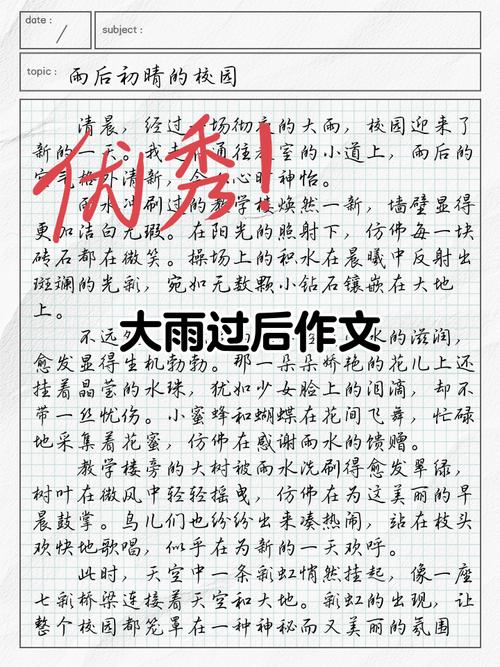 date :
subject :
topic : 雨后初晴的校园
清晨，经过一场彻夜的大雨，校园迎来了
新的一天。我走在通往教室的小道上，雨后的
空气格外清新，令人心旷神怡。
优秀！
雨水冲刷过的教学楼焕然一新，墙壁显得
更加洁白无瑕。在阳光的照射下，仿佛每一块
砖石都在微笑。操场上的积水在晨曦中反射出
斑斓的光彩，宛如无数颗小钻石镶嵌在大地
上。
大雨过后作文
不远处 水的滋润，
愈发显得生机勃勃。那一朵朵娇艳的花儿上还
挂着晶莹的水珠，犹如少女脸上的泪滴，却不
带一丝忧伤。小蜜蜂和蝴蝶在花间飞舞，忙碌
地采集着花蜜，仿佛在感谢雨水的馈赠。
教学楼旁的大树被雨水洗刷得愈发翠绿，
树叶在微风中轻轻摇曳，仿佛在为这美丽的早
晨鼓掌。鸟儿们也纷纷出来凑热闹，站在枝头
欢快地歌唱，似乎在为新的一天欢呼。
此时，天空中一条彩虹悄然挂起，像一座
七彩桥梁连接着天空和大地。彩虹的出现，让
整个校园都笼罩在一种神秘而又美丽的氛围